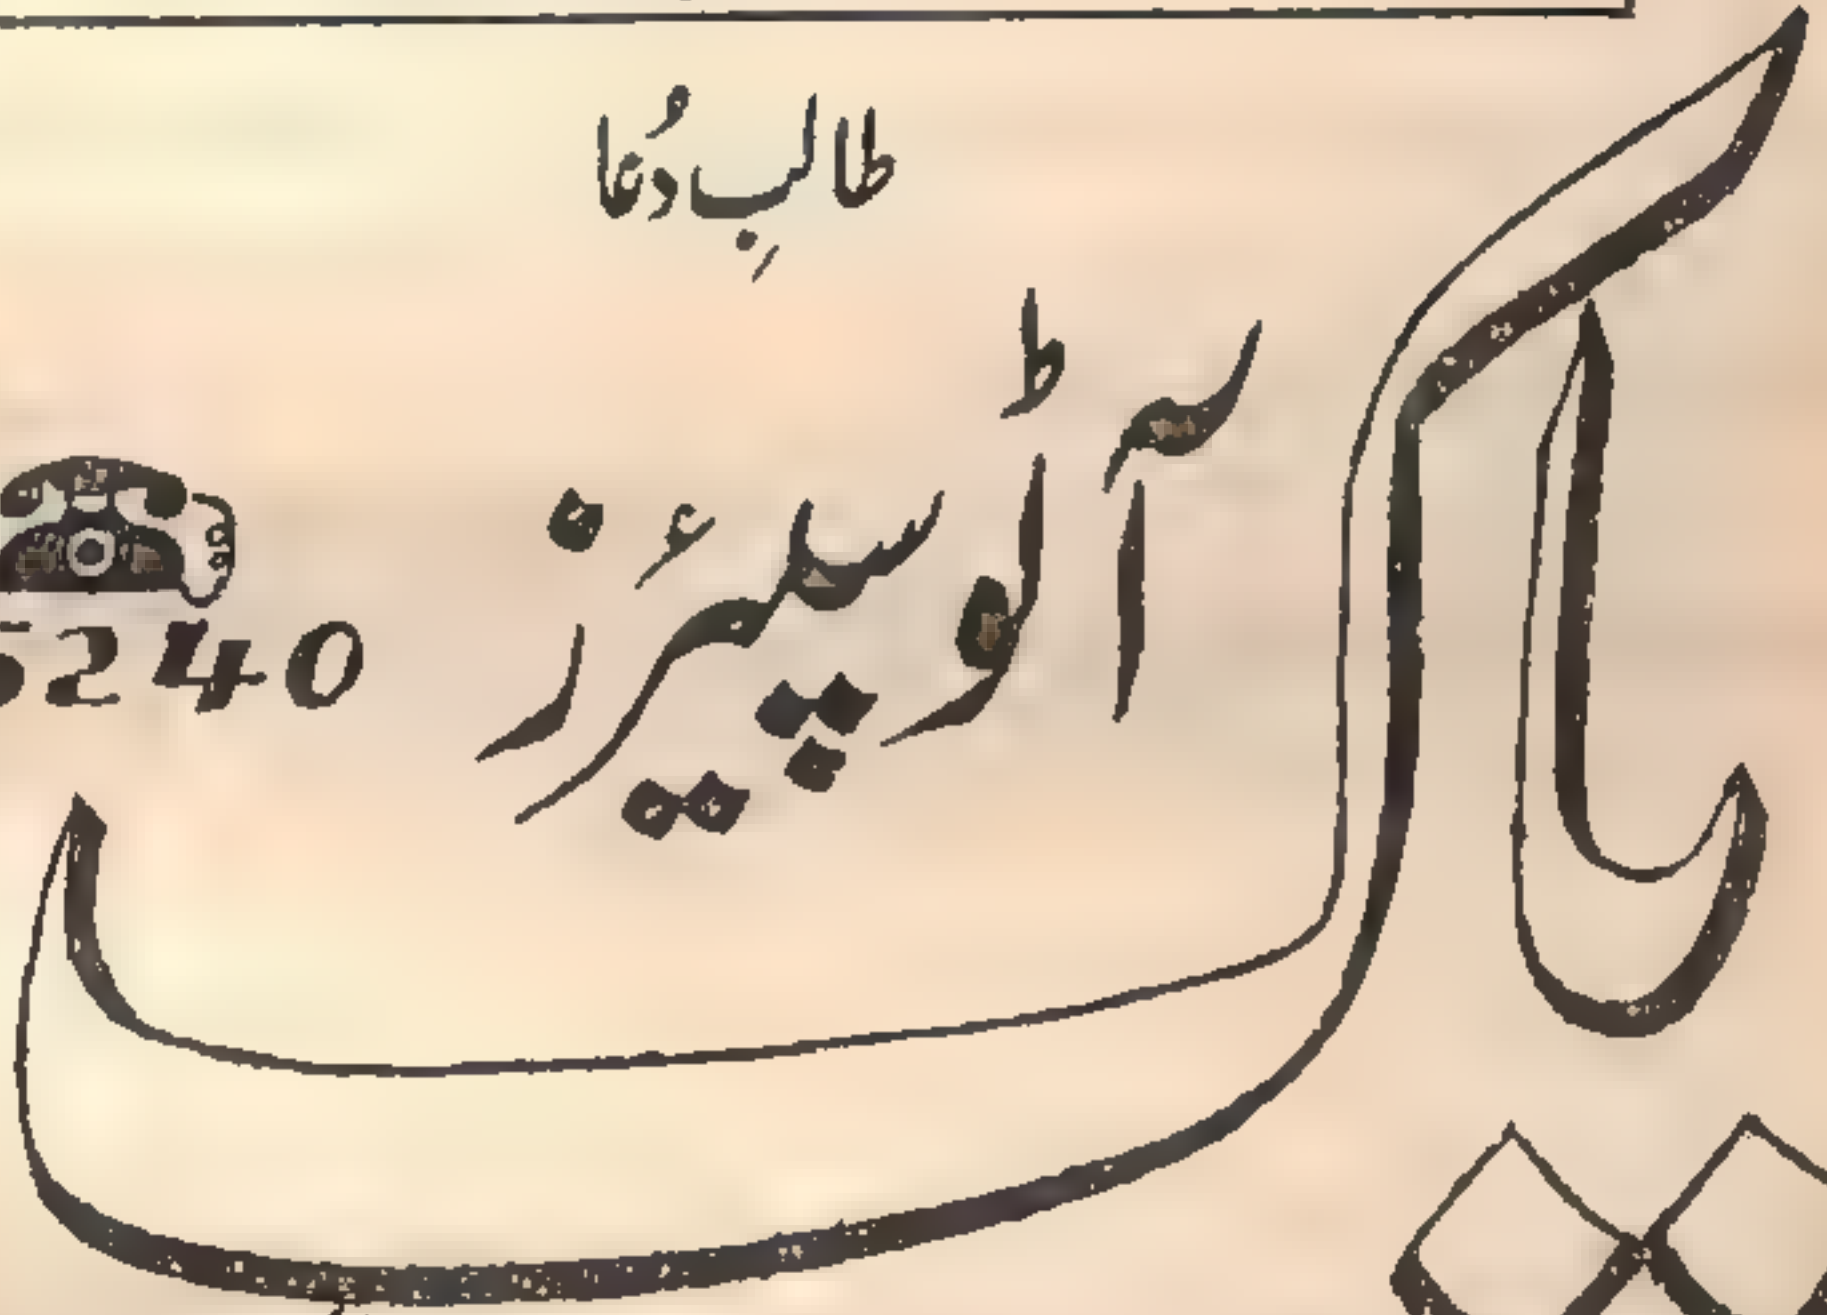 طالبِ دُعا
پاک آٹو سپلیئرز
5240